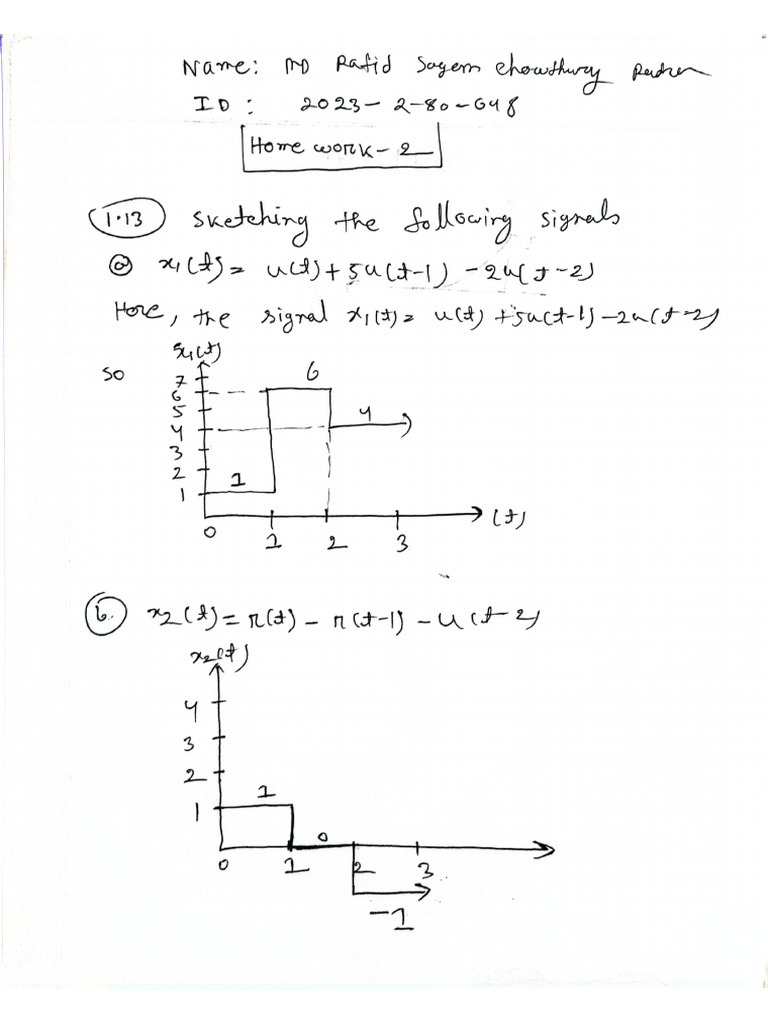 Name: MD Rafid Sayem Chowdhury
ID: 2023-2-80-048
Home work-2
1.13 Sketching the following signals
a) x₁(t) = u(t) + 5u(t-1) - 2u(t-2)
Here, the signal x₁(t) = u(t) + 5u(t-1) - 2u(t-2)
so
x₁(t)
7
6
5
4
3
2
1
1
6
4
0 1 2 3 (t)
b. x₂(t) = r(t) - r(t-1) - u(t-2)
x₂(t)
4
3
2
1
1
0
0 1 2 3
-1